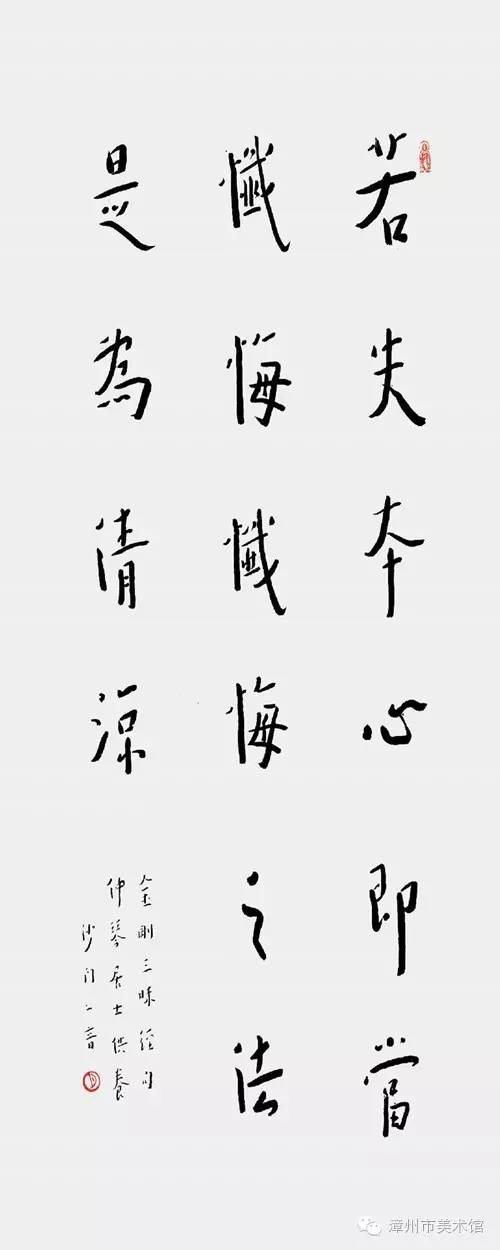 若失本心即當
懺悔懺悔之法
是為清涼
金剛三昧經句
仲琴居士供養
沙門一音
漳州市美术馆